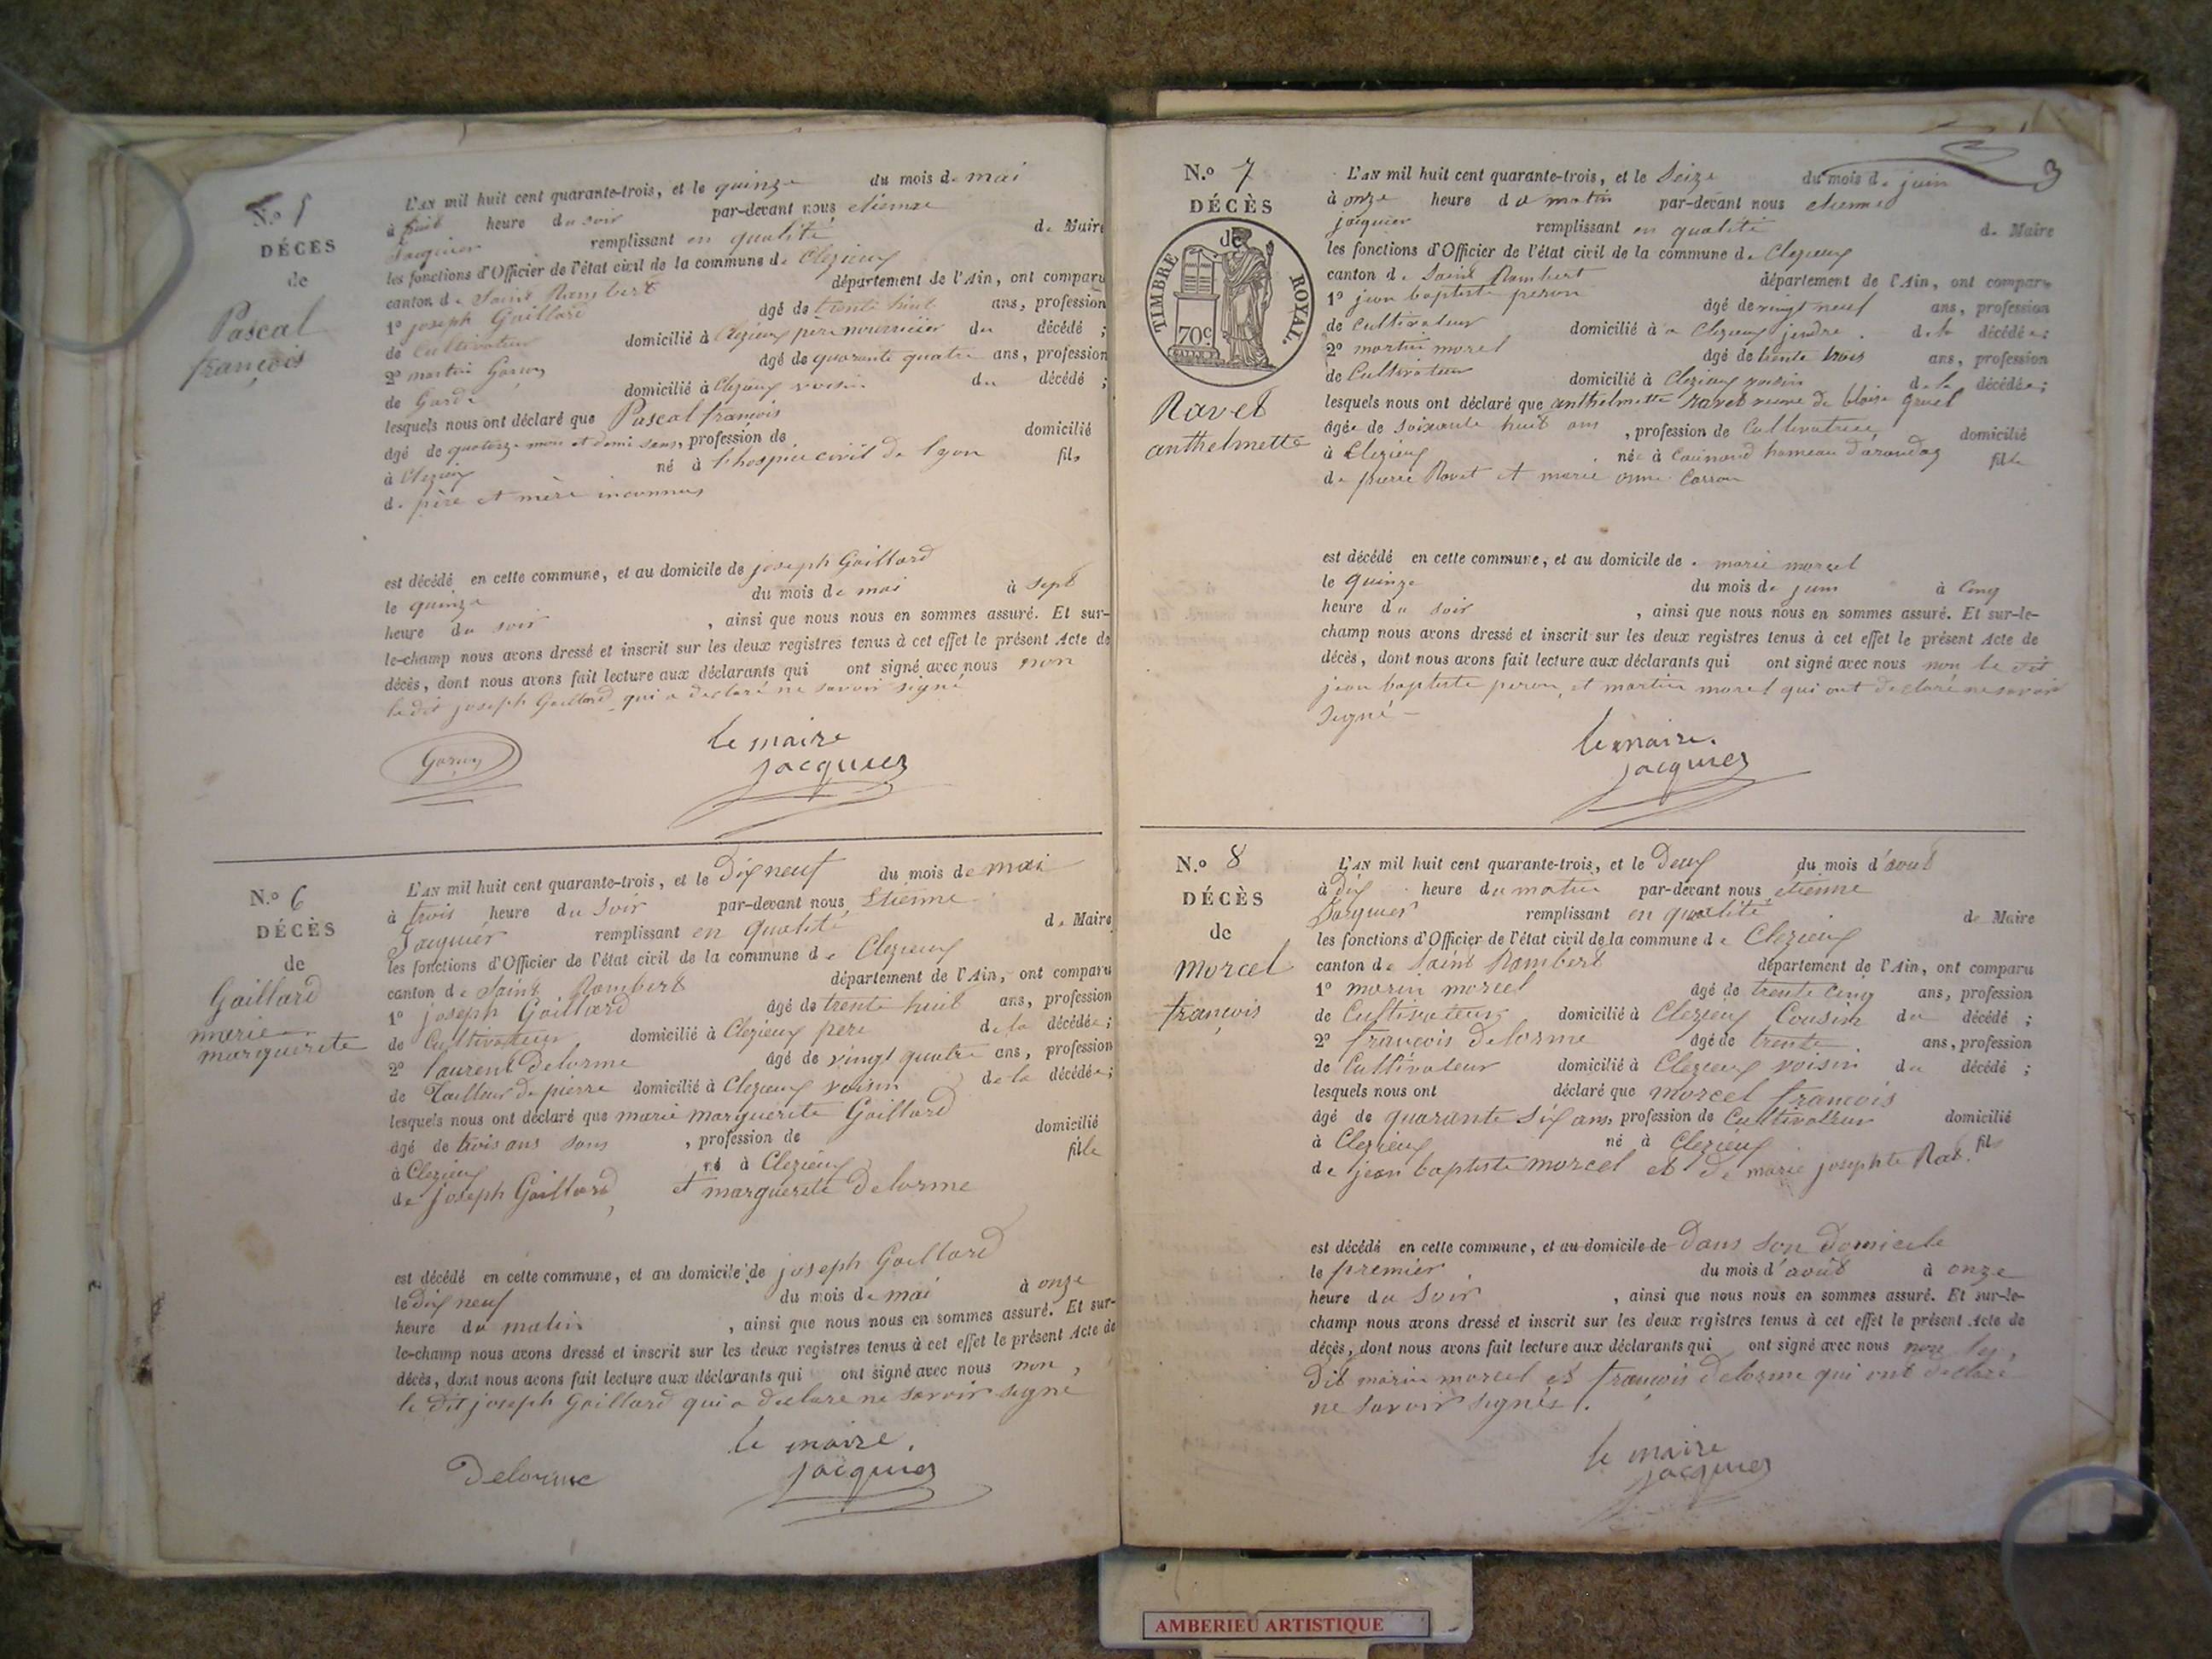 N.o 5
DÉCES
de
Pascal
françois
L'AN mil huit cent quarante-trois, et le quinze du mois de mai
à huit heure du soir par-devant nous etienne
Jacquier remplissant en qualité de Maire
les fonctions d'Officier de l'état civil de la commune de Clezieux
canton de Saint Rambert département de l'Ain, ont comparu
1º joseph Gaillard agé de trente huit ans, profession
de Cultivateur domicilié à Clezieux pere nourricier du décédé ;
2º martin agé de quarante quatre ans, profession
de Garde domicilié à Clezieux voisin du décédé ;
lesquels nous ont déclaré que Pascal françois
agé de quatorze mois et demi sans, profession de domicilié
à Clezieux né à l'hospice civil de lyon fils
de père et mère inconnus
est décédé en cette commune, et au domicile de joseph Gaillard
le quinze du mois de mai à sept
heure du soir , ainsi que nous nous en sommes assuré. Et sur-
le-champ nous avons dressé et inscrit sur les deux registres tenus à cet effet le présent Acte de
décès, dont nous avons fait lecture aux déclarants qui ont signé avec nous non
le dit joseph Gaillard qui a declaré ne savoir signé
le maire
jacquier
N.o 6
DÉCÈS
de
Gaillard
marie
marguerite
L'AN mil huit cent quarante-trois, et le Dix neuf du mois de mai
à trois heure du soir par-devant nous Etienne
Jacquier remplissant en qualité de Maire
les fonctions d'Officier de l'état civil de la commune de Clezieux
canton de Saint Rambert département de l'Ain, ont comparu
1º joseph Gaillard âgé de trente huit ans, profession
de Cultivateur domicilié à Clezieux pere de la décédée ;
2º laurent Delorme âgé de vingt quatre ans, profession
de Tailleur de pierre domicilié à Clezieux voisin de la décédée ;
lesquels nous ont déclaré que marie marguerite Gaillard
agé de trois ans sans , profession de domicilié
à Clezieux né à Clezieux fille
de joseph Gaillard, et marguerite Delorme
est décédé en cette commune, et au domicile de joseph Gaillard
le Dix neuf du mois de mai à onze
heure du matin , ainsi que nous nous en sommes assuré. Et sur-
le-champ nous avons dressé et inscrit sur les deux registres tenus à cet effet le présent Acte de
décès, dont nous avons fait lecture aux déclarants qui ont signé avec nous non,
le dit joseph Gaillard qui a declare ne savoir signe
le maire.
Delorme jacquier
3
N.o 7
DÉCÈS
de
TIMBRE ROYAL.
70c
Ravet
anthelmette
L'AN mil huit cent quarante-trois, et le Seize du mois de juin
à onze heure du matin par-devant nous etienne
jacquier remplissant en qualité de Maire
les fonctions d'Officier de l'état civil de la commune de Clezieux
canton de Saint Rambert département de l'Ain, ont comparu
1º jean baptiste peron agé de vingt neuf ans, profession
de Cultivateur domicilié à a Clezieux jendre de la décédée ;
2º martin morel agé de trente trois ans, profession
de Cultivateur domicilié à Clezieux voisin de la décédée ;
lesquels nous ont déclaré que anthelmette ravet veuve de blaise gruel
âgée de soixante huit ans , profession de Cultivatrice domicilié
à Clezieux née à hameau d'arandaz fille
de pierre Ravet et marie anne
est décédé en cette commune, et au domicile de marie morcel
le quinze du mois de juin à Cinq
heure du soir , ainsi que nous nous en sommes assuré. Et sur-le-
champ nous avons dressé et inscrit sur les deux registres tenus à cet effet le présent Acte de
décès, dont nous avons fait lecture aux déclarants qui ont signé avec nous non le dit
jean baptiste peron, et martin morel qui ont declaré ne savoir
signé
le maire.
jacquier
N.o 8
DÉCÈS
de
morcel
françois
L'AN mil huit cent quarante-trois, et le Deux du mois d'aout
à dix heure du matin par-devant nous etienne
Jacquier remplissant en qualité de Maire
les fonctions d'Officier de l'état civil de la commune de Clezieux
canton de Saint Rambert département de l'Ain, ont comparu
1º marin morcel âgé de trente cinq ans, profession
de Cultivateur domicilié à Clezieux Cousin du décédé ;
2º françois Delorme âgé de trente ans, profession
de Cultivateur domicilié à Clezieux voisin du décédé ;
lesquels nous ont déclaré que morcel françois
âgé de quarante six ans, profession de Cultivateur domicilié
à Clezieux né à Clezieux fils
de jean baptiste morcel et de marie josephte
est décédé en cette commune, et au domicile de Dans son Domicile
le premier du mois d'août à onze
heure du Soir , ainsi que nous nous en sommes assuré. Et sur-le-
champ nous avons dressé et inscrit sur les deux registres tenus à cet effet le présent Acte de
décès, dont nous avons fait lecture aux déclarants qui ont signé avec nous non les
Dit marin morcel et françois Delorme qui ont declaré
ne savoir signés.
le maire
jacquier
AMBERIEU ARTISTIQUE